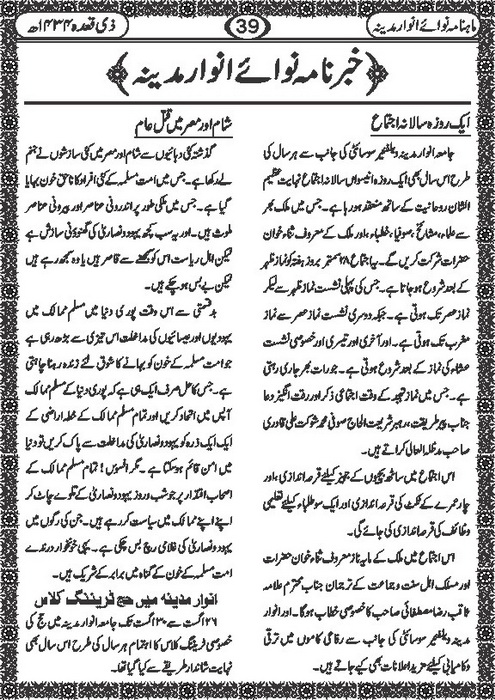 ماہنامہ نوائے انوار مدینہ
39
ذی قعدہ ۱۴۳۴ھ
خبر نامہ نوائے انوار مدینہ
ایک روزہ سالانہ اجتماع
جامعہ انوار مدینہ ویلفیئر سوسائٹی کی جانب سے ہر سال کی
طرح اس سال بھی ایک روزہ انیسواں سالانہ اجتماع نہایت عظیم
الشان روحانیت کے ساتھ منعقد ہو رہا ہے۔ جس میں ملک بھر
سے علماء، مشائخ، صوفیاء، خطباء، اور ملک کے معروف ثناء خوان
حضرات شرکت کریں گے۔ یہ اجتماع ۲۸ ستمبر بروز ہفتہ کو نماز ظہر
کے بعد شروع ہو جاتا ہے۔ جس کی پہلی نشست نماز ظہر سے لیکر
نماز عصر تک ہوتی ہے۔ جبکہ دوسری نشست نماز عصر سے نماز
مغرب تک ہوتی ہے۔ اور آخری اور تیسری اور خصوصی نشست
عشاء کی نماز کے بعد شروع ہوتی ہے۔ جو رات بھر جاری رہتی
ہے۔ جس میں نماز تہجد کے وقت اجتماعی ذکر اور رقت انگیز دعا
جناب پیر طریقت، رہبر شریعت الحاج صوفی محمد شوکت علی قادری
صاحب مدظلہ العالی کراتے ہیں۔
اس اجتماع میں ساٹھ بچیوں کے جہیز کیلئے قرعہ اندازی، اور
چار عمرے کے ٹکٹ کی قرعہ اندازی اور ایک سو طلباء کیلئے تعلیمی
وظائف کی قرعہ اندازی کی جائے گی۔
اس اجتماع میں ملک کے مایہ ناز معروف ثناء خوان حضرات
اور مسلک اہل سنت و جماعت کے ترجمان جناب محترم علامہ
ثاقب رضا مصطفائی صاحب کا خصوصی خطاب ہوگا۔ اور انوار
مدینہ ویلفیئر سوسائٹی کی جانب سے رفاعی کاموں میں ترقی
و کامیابی کیلئے مزید اعلانات بھی کیے جاتے ہیں۔
شام اور مصر میں قتل عام
گذشتہ کئی دہائیوں سے شام اور مصر میں کئی سازشوں نے جنم
لے رکھا ہے۔ جس میں امت مسلمہ کے کئی افراد کا ناحق خون بہایا
گیا ہے۔ جس میں ملکی طور پر اندرونی عناصر اور بیرونی عناصر
ملوث ہیں۔ اور یہ سب کچھ یہود و نصاریٰ کی گھنونی سازش ہے
لیکن اہل ریاست اس کو سمجھنے سے قاصر ہیں یا وہ سمجھ رہے ہیں
لیکن بے بس ہو چکے ہیں۔
بدقسمتی سے اس وقت پوری دنیا میں مسلم ممالک میں
یہودیوں اور عیسائیوں کی مداخلت اس تیزی سے بڑھ رہی ہے
جو امت مسلمہ کے خون کو بہانے کا شوق لئے زندہ رہنا چاہتی
ہے۔ جس کا حل صرف ایک ہی ہے کہ پوری دنیا کے مسلم ممالک
آپس میں اتحاد کریں اور تمام مسلم ممالک کے خطہ اراضی کے
ایک ایک ذرہ کو یہود و نصاریٰ کی مداخلت سے پاک کریں تو دنیا
میں امن قائم ہو سکتا ہے۔ مگر افسوس! تمام مسلم ممالک کے
اصحاب اقتدار پر جو شب و روز یہود و نصاریٰ کے تلوے چاٹ کر
اپنے اپنے ممالک میں سیاست کر رہے ہیں۔ جن کی رگوں میں
یہود و نصاریٰ کی غلامی رچ بس چکی ہے۔ یہی خونخوار درندے
امت مسلمہ کے خون کے گناہ میں برابر کے شریک ہیں۔
انوار مدینہ میں حج ٹریننگ کلاس
۲۶ اگست سے ۳۰ اگست تک جامعہ انوار مدینہ میں حج کی
خصوصی ٹریننگ کلاس کا اہتمام ہر سال کی طرح اس سال بھی
نہایت شاندار طریقے سے کیا گیا تھا۔